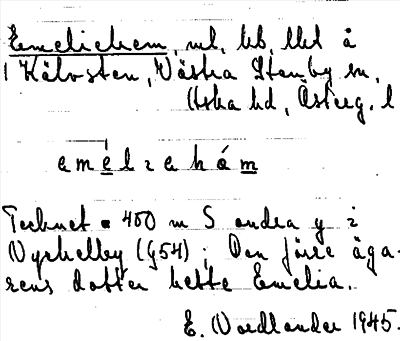 Emeliehem, ul, lht å
1 Kälvsten, Västra Stenby sn,
Aska hd, Österg. l
Tecknet • 400 m S andra y i
Nyckelby (G54); Den förre äga-
rens dotter hette Emelia.
E. Nordlander 1945.